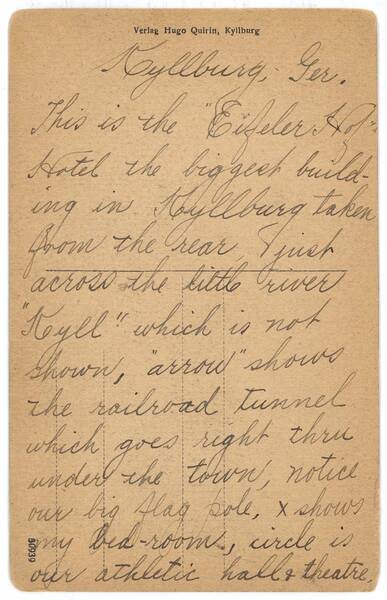 Verlag Hugo Quirin, Kyllburg
Kyllburg, Ger.
This is the "Eifeler Hof"
Hotel the biggest build-
ing in Kyllburg taken
from the rear & just
across the little river
"Kyll" which is not
shown, "arrow" shows
the railroad tunnel
which goes right thru
under the town, notice
our big flag pole, x shows
my bed-room, circle is
our athletic hall & theatre.
50939